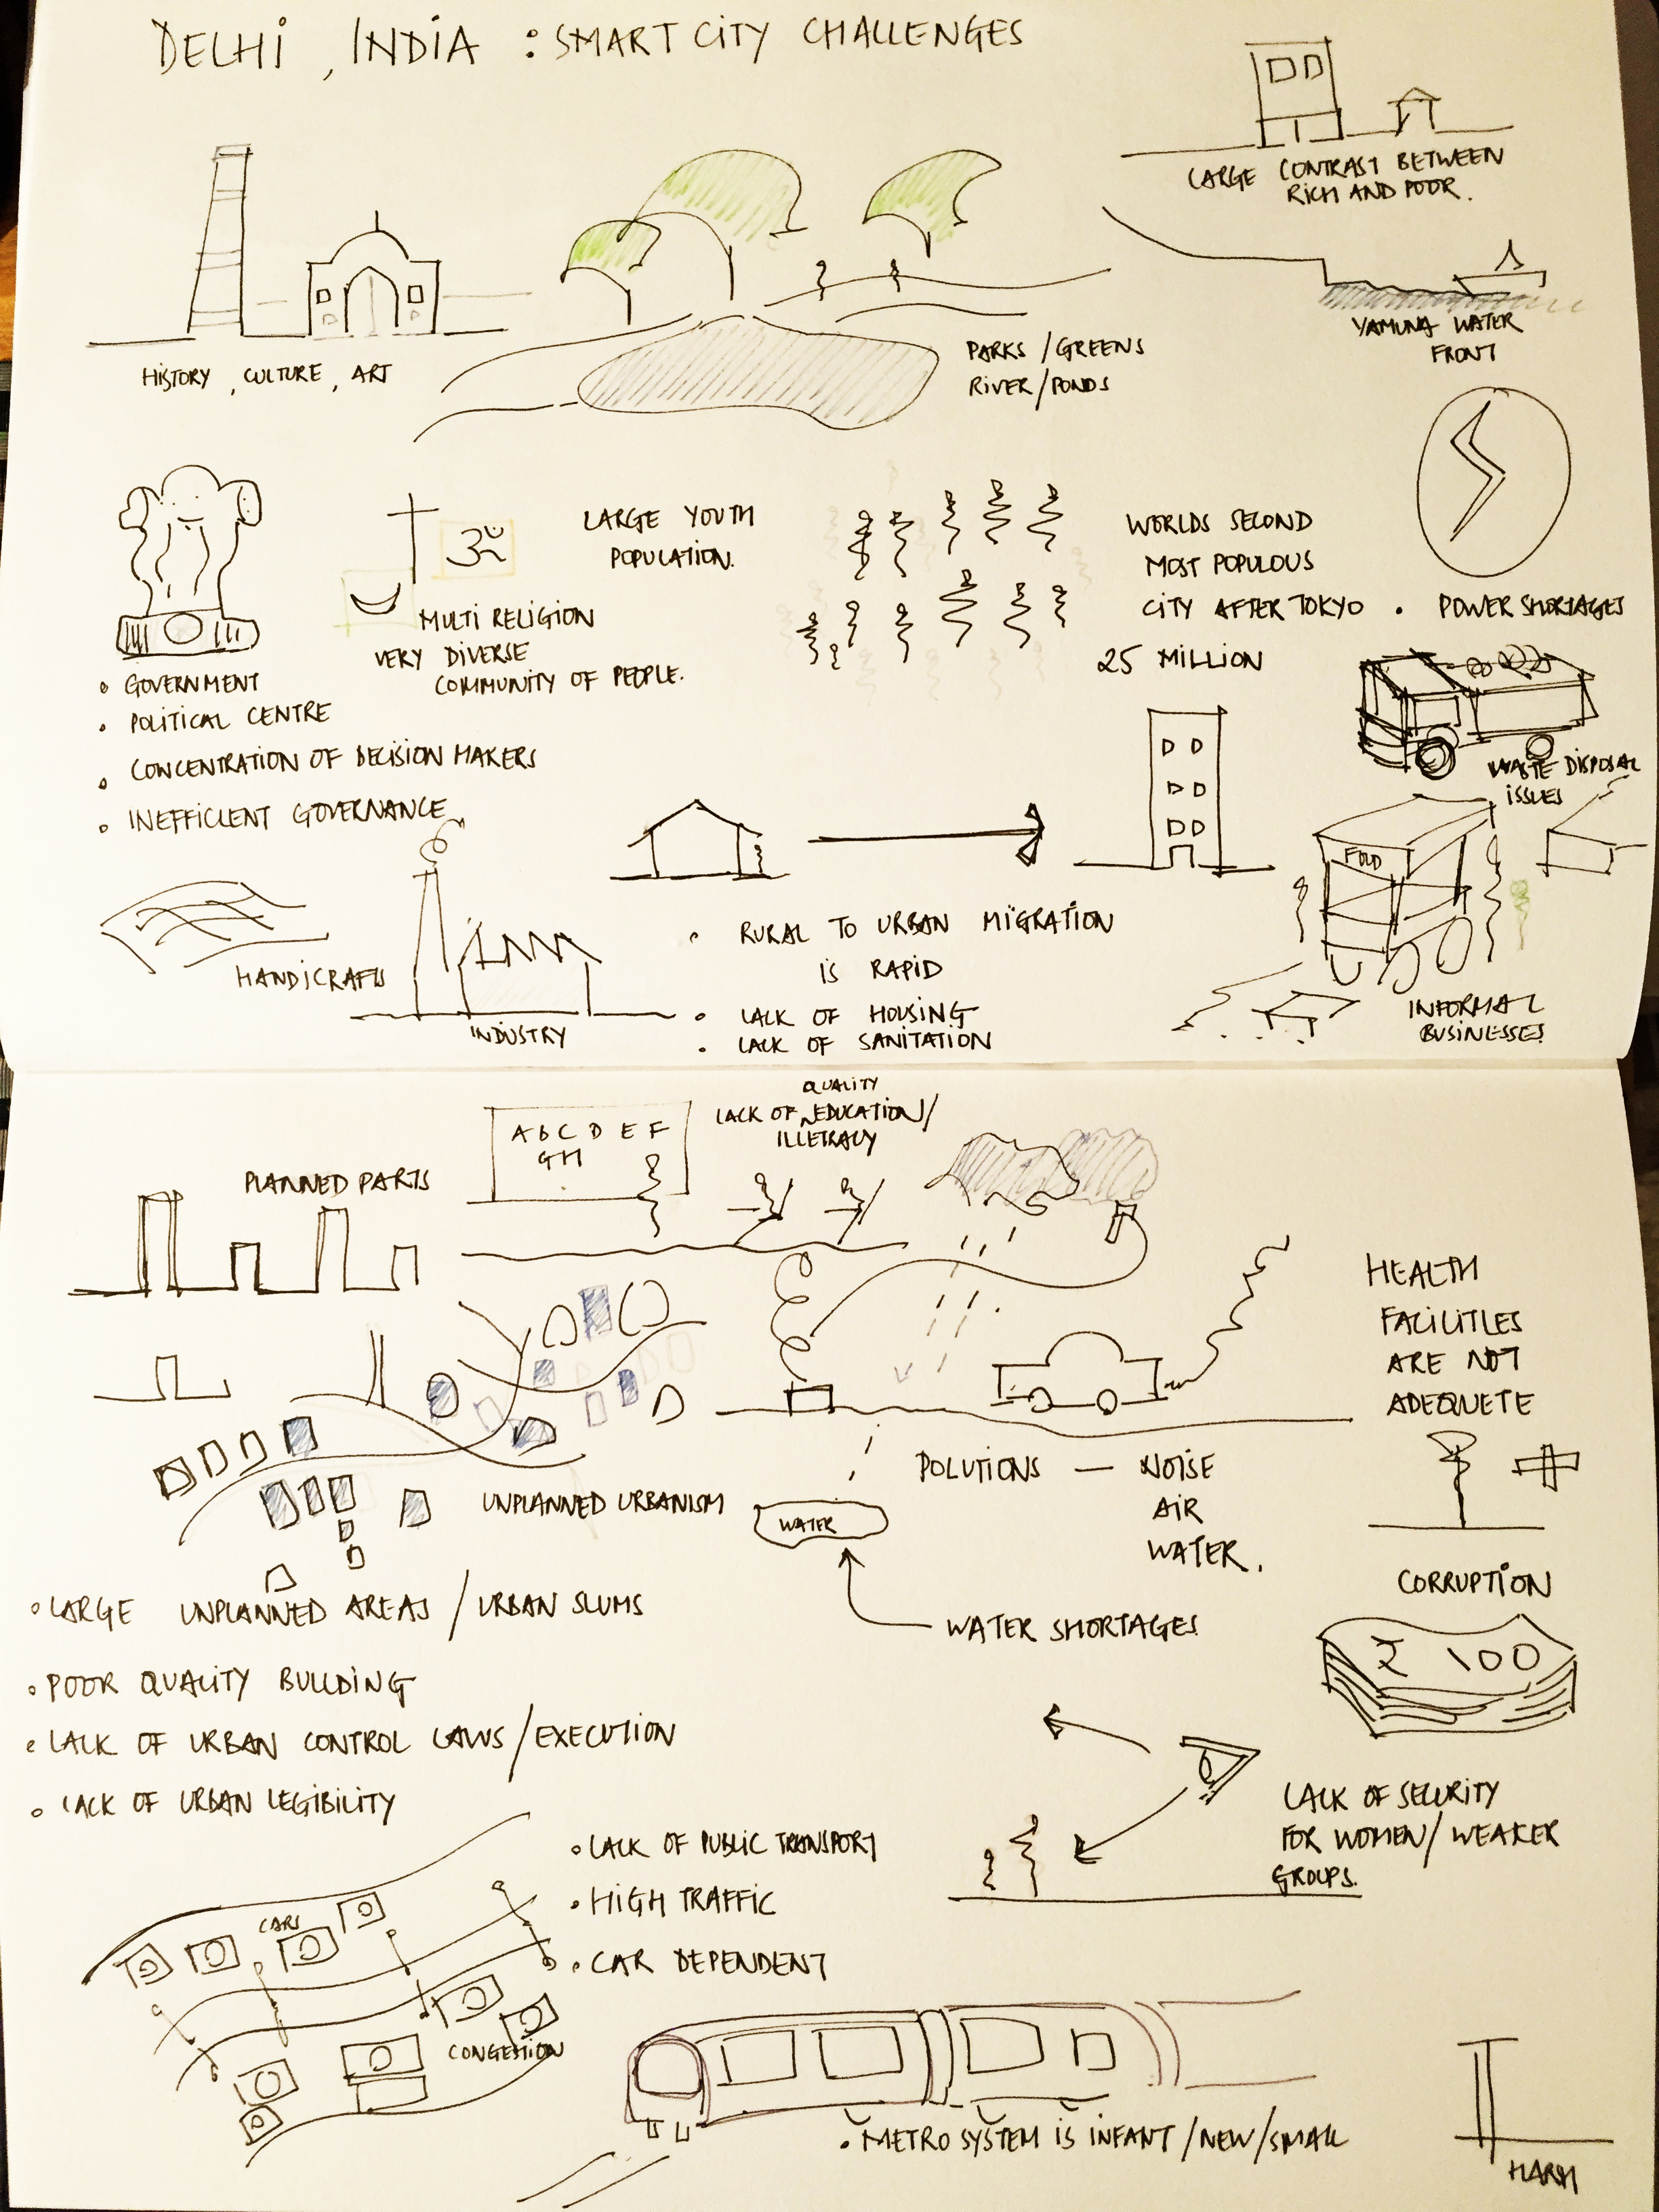 DELHI, INDIA : SMART CITY CHALLENGES
LARGE CONTRAST BETWEEN
RICH AND POOR.
HISTORY, CULTURE, ART
PARKS / GREENS
RIVER / PONDS
YAMUNA WATER
FRONT
• GOVERNMENT
• POLITICAL CENTRE
• CONCENTRATION OF DECISION MAKERS
• INEFFICIENT GOVERNANCE
ॐ
MULTI RELIGION
VERY DIVERSE
COMMUNITY OF PEOPLE.
LARGE YOUTH
POPULATION.
WORLDS SECOND
MOST POPULOUS
CITY AFTER TOKYO
25 MILLION
• POWER SHORTAGES
WASTE DISPOSAL
ISSUES
HANDICRAFTS
INDUSTRY
• RURAL TO URBAN MIGRATION
IS RAPID
• LACK OF HOUSING
• LACK OF SANITATION
FOOD
INFORMAL
BUSINESSES
PLANNED PARTS
A B C D E F
G H
QUALITY
LACK OF EDUCATION/
ILLETRACY
HEALTH
FACILITIES
ARE NOT
ADEQUETE
UNPLANNED URBANISM
POLUTIONS — NOISE
AIR
WATER.
WATER
WATER SHORTAGES
• LARGE UNPLANNED AREAS / URBAN SLUMS
• POOR QUALITY BUILDING
• LACK OF URBAN CONTROL LAWS / EXECUTION
• LACK OF URBAN LEGIBILITY
CORRUPTION
₹ 100
LACK OF SECURITY
FOR WOMEN / WEAKER
GROUPS.
• LACK OF PUBLIC TRANSPORT
• HIGH TRAFFIC
• CAR DEPENDENT
CARS
CONGESTION
• METRO SYSTEM IS INFANT / NEW / SMALL